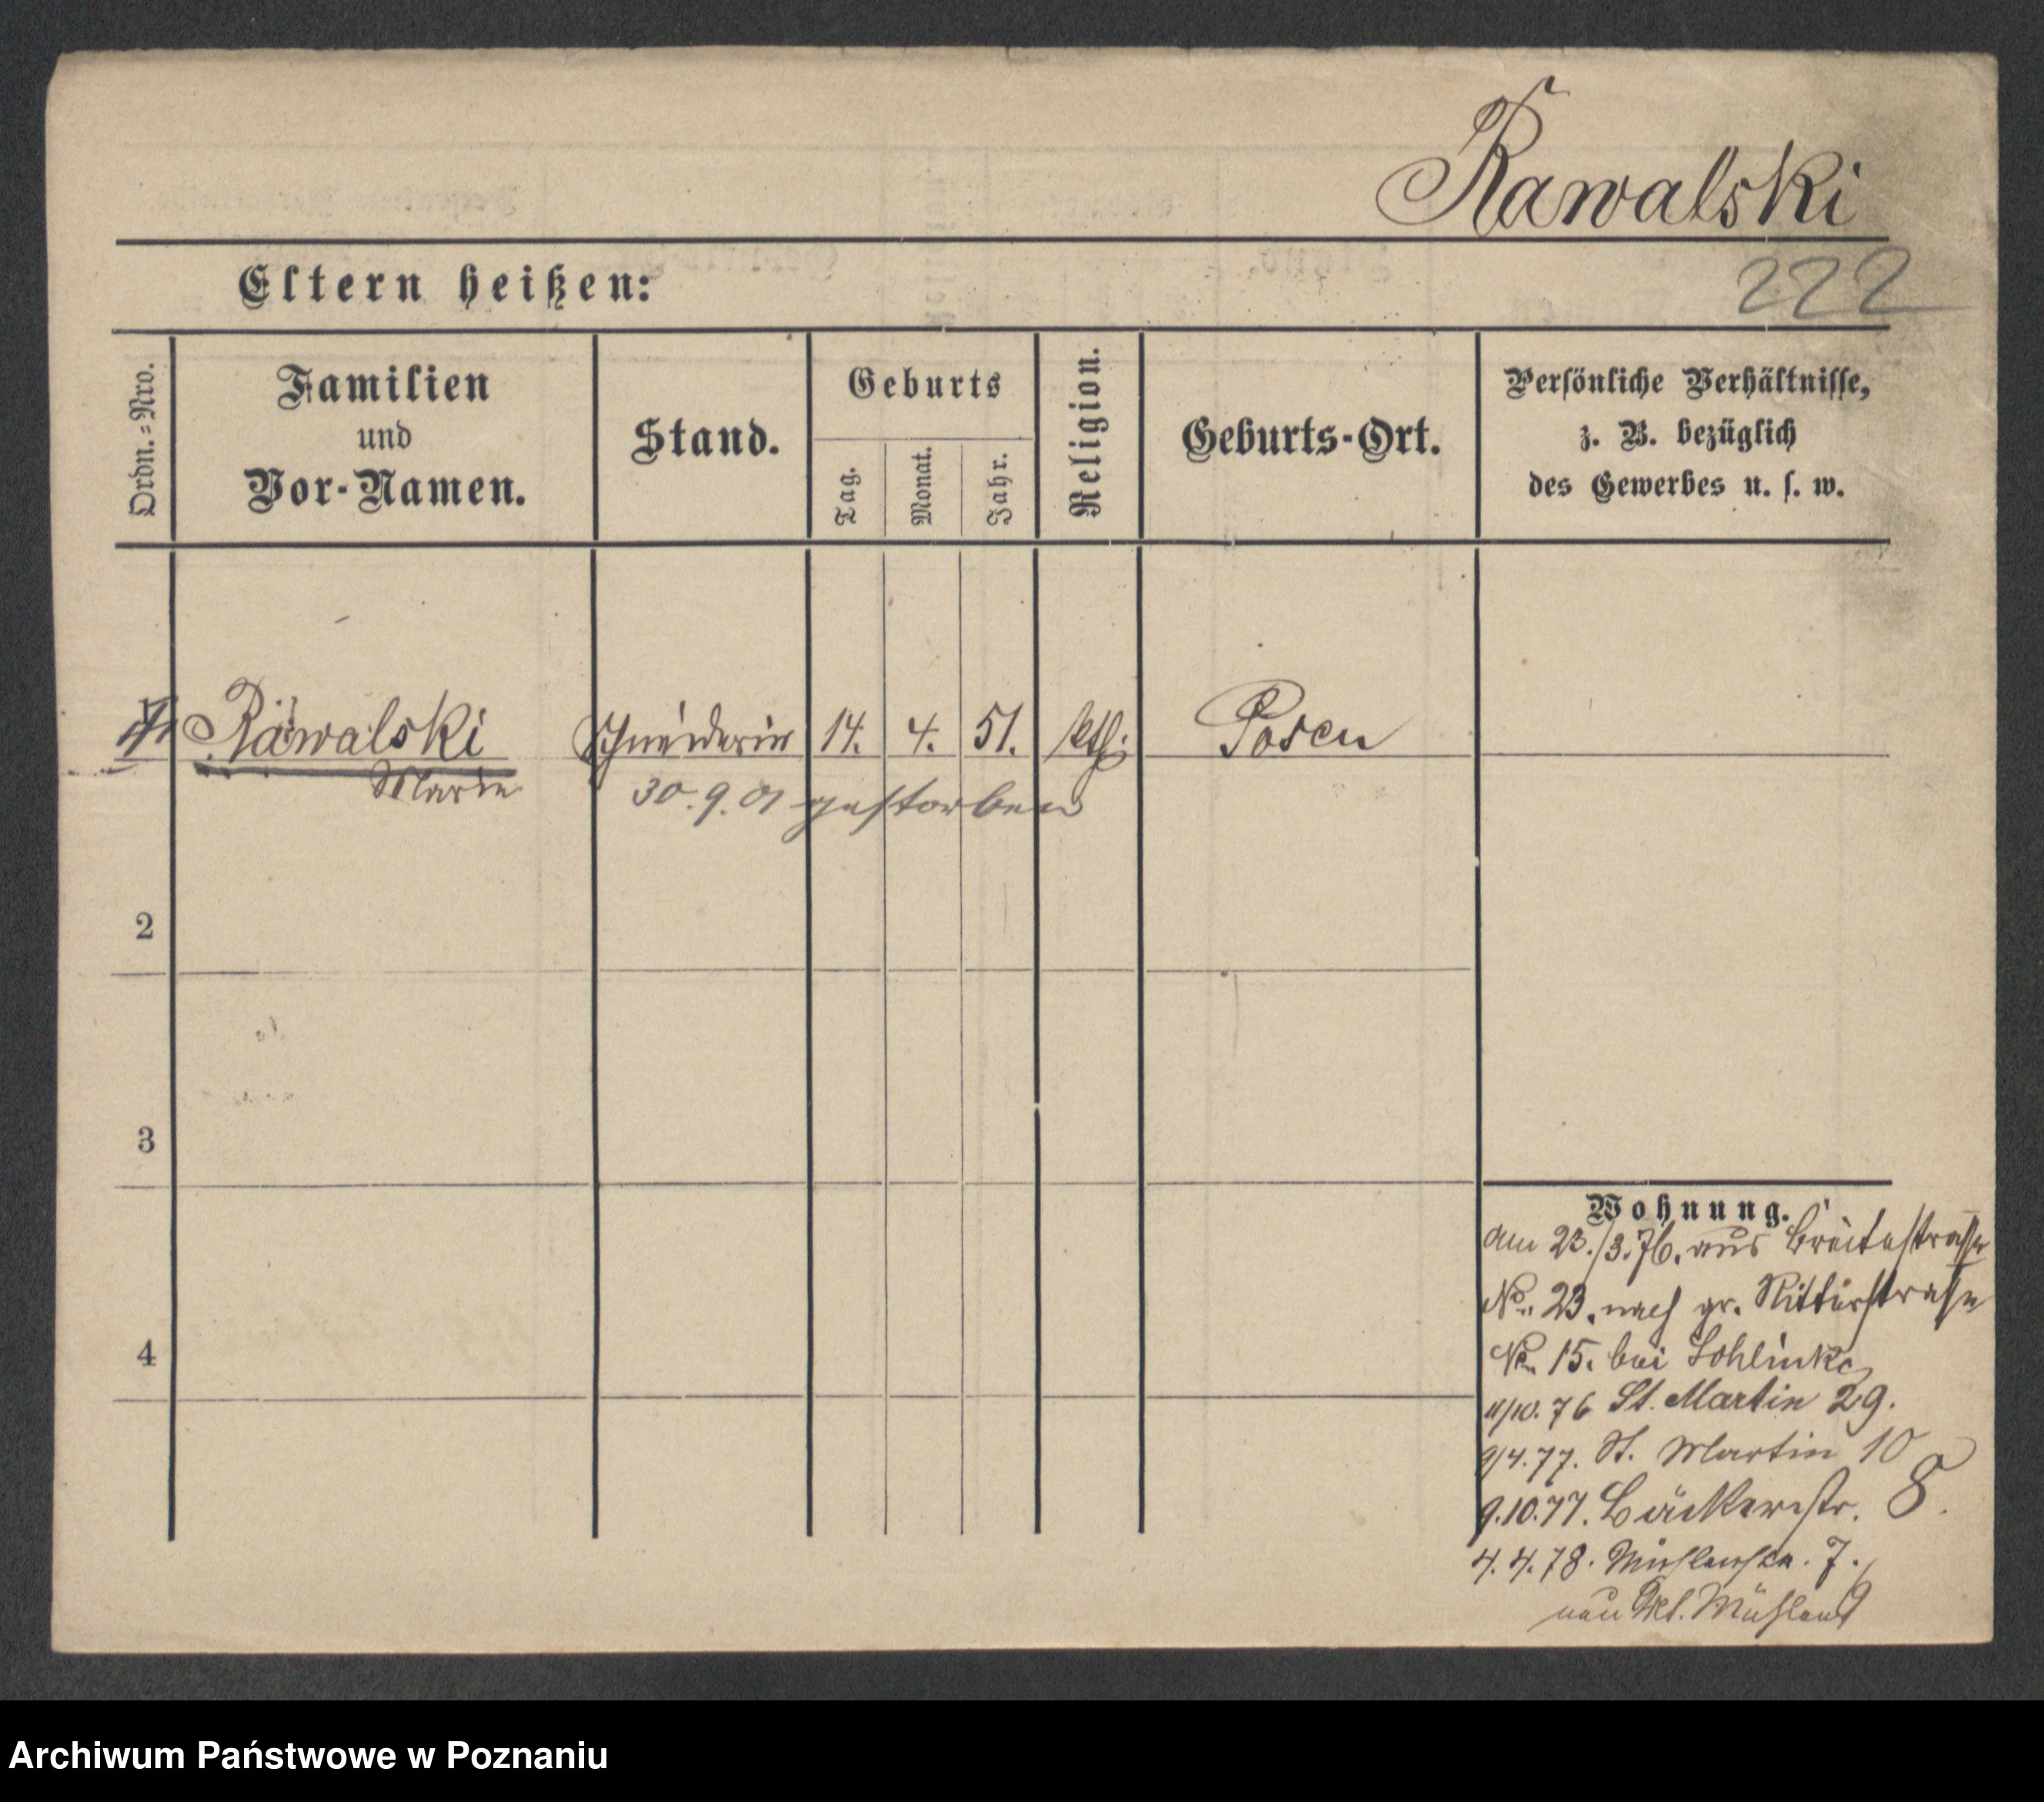 Rawalski
222
Eltern heißen:
Ordn.-Nro.
Familien
und
Vor-Namen.
Stand.
Geburts
Tag.
Monat.
Jahr.
Religion.
Geburts-Ort.
Persönliche Verhältnisse,
z. B. bezüglich
des Gewerbes u. s. w.
Rawalski Schneiderin 14. 4. 51. kth. Posen
Marie
30.9.01 gestorben
2
3
4
Wohnung.
am 23./3.76. aus Breitestrasse
No. 23. nach gr. Ritterstraße
No. 15. bei
11/10. 76 St. Martin 29.
9/4.77. St. Martin 10
9.10.77. Bäckerstr. 8.
4.4.78. Mühlenstr. 7.
neu
Archiwum Państwowe w Poznaniu